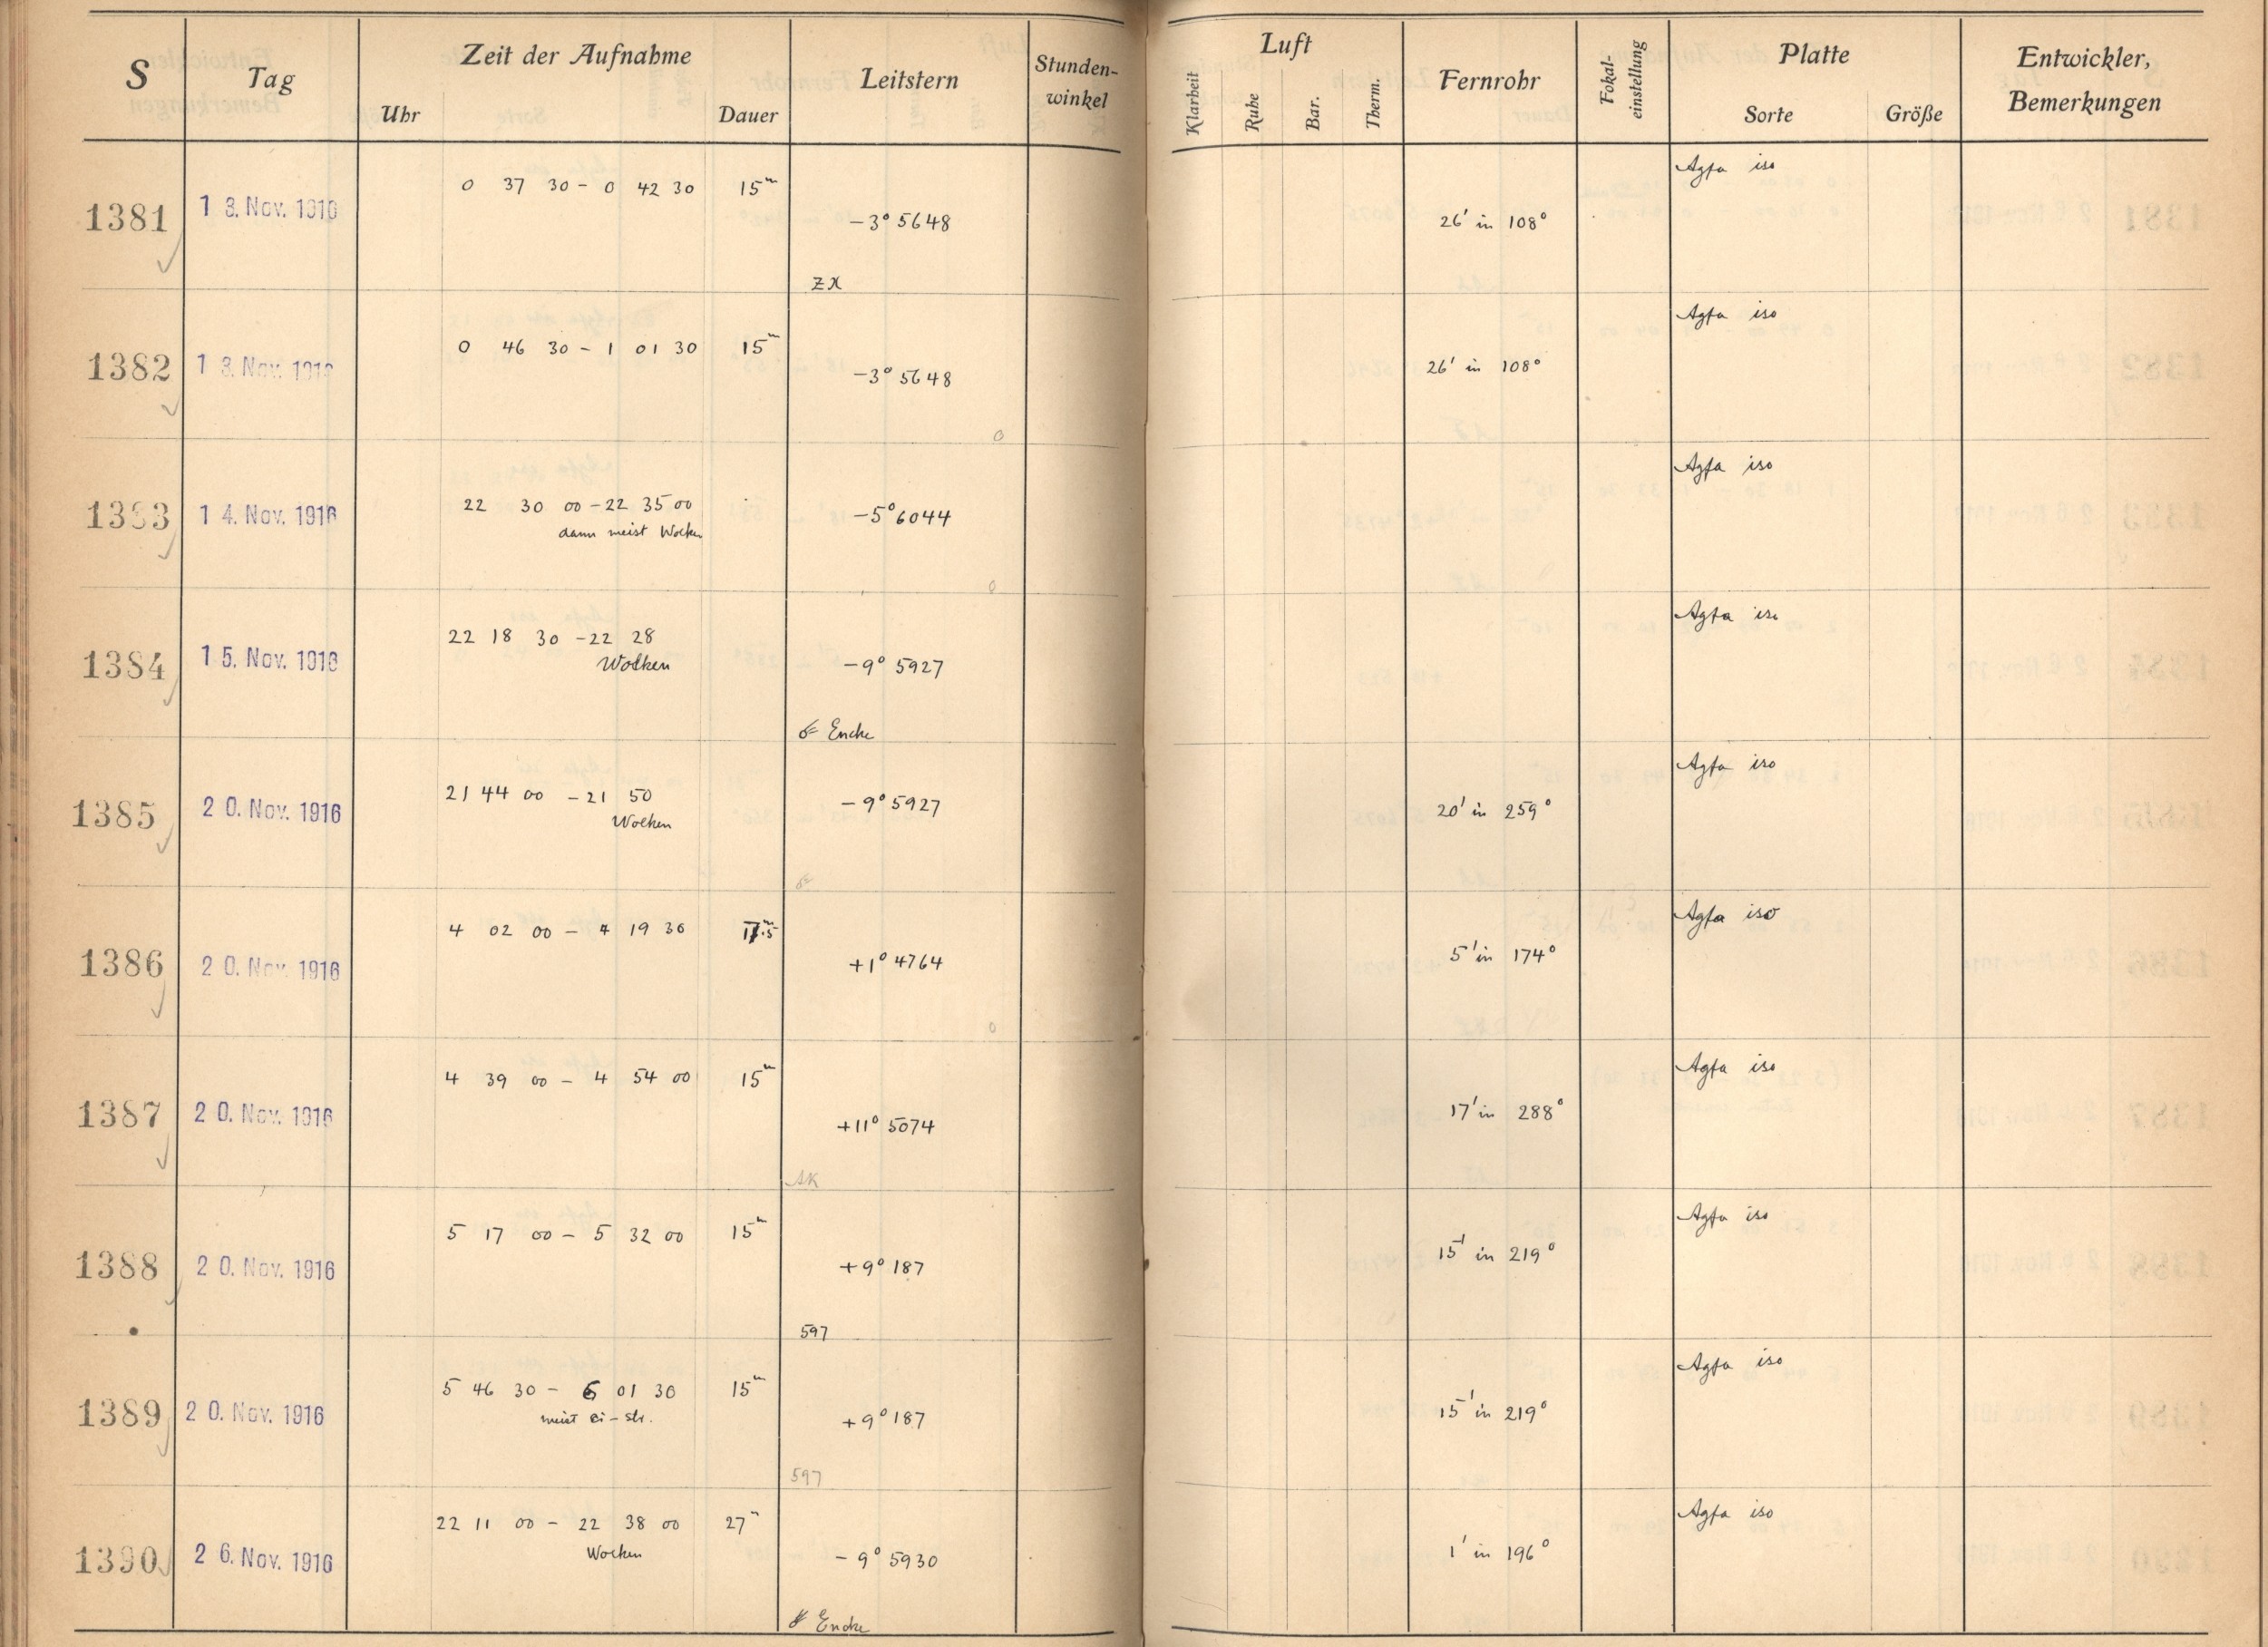 S Tag Zeit der Aufnahme Leitstern Stunden-winkel Luft Fernrohr Fokal-einstellung Platte Entwickler, Bemerkungen
Uhr Dauer Klarheit Ruhe Bar. Therm. Sorte Größe
Agfa iso
1381 1 3. Nov. 1916 0 37 30 – 0 42 30 15m −3° 5648 26' in 108°
ZX
Agfa iso
1382 1 3. Nov. 1916 0 46 30 – 1 01 30 15m −3° 5648 26' in 108°
0
Agfa iso
1383 1 4. Nov. 1916 22 30 00 – 22 35 00 −5° 6044
dann meist Wolken
0
Agfa iso
1384 1 5. Nov. 1916 22 18 30 – 22 28 −9° 5927
Wolken
Encke
Agfa iso
1385 2 0. Nov. 1916 21 44 00 – 21 50 −9° 5927 20' in 259°
Wolken
Agfa iso
1386 2 0. Nov. 1916 4 02 00 – 4 19 30 17.5m +1° 4764 5' in 174°
0
Agfa iso
1387 2 0. Nov. 1916 4 39 00 – 4 54 00 15m +11° 5074 17' in 288°
AK
Agfa iso
1388 2 0. Nov. 1916 5 17 00 – 5 32 00 15m +9° 187 15' in 219°
597
Agfa iso
1389 2 0. Nov. 1916 5 46 30 – 6 01 30 15m +9° 187 15' in 219°
meist ci-str.
597
Agfa iso
1390 2 6. Nov. 1916 22 11 00 – 22 38 00 27m −9° 5930 1' in 196°
Wolken
Encke